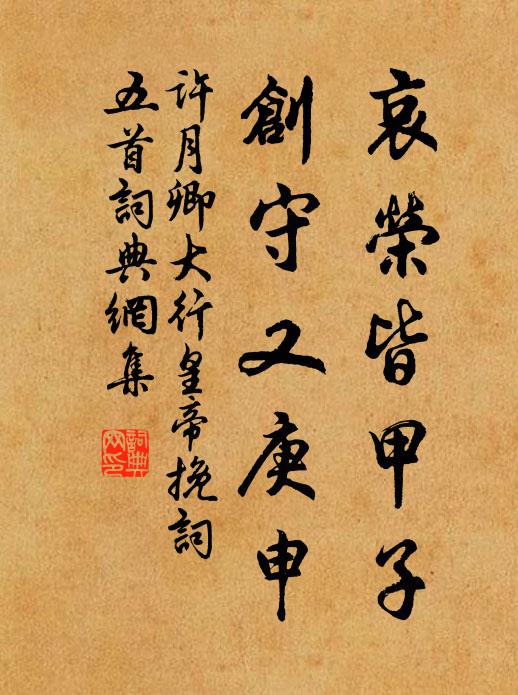 哀榮皆甲子
創守又庚申
許月卿大行皇帝挽詞
五首詞典網集
詞典網印